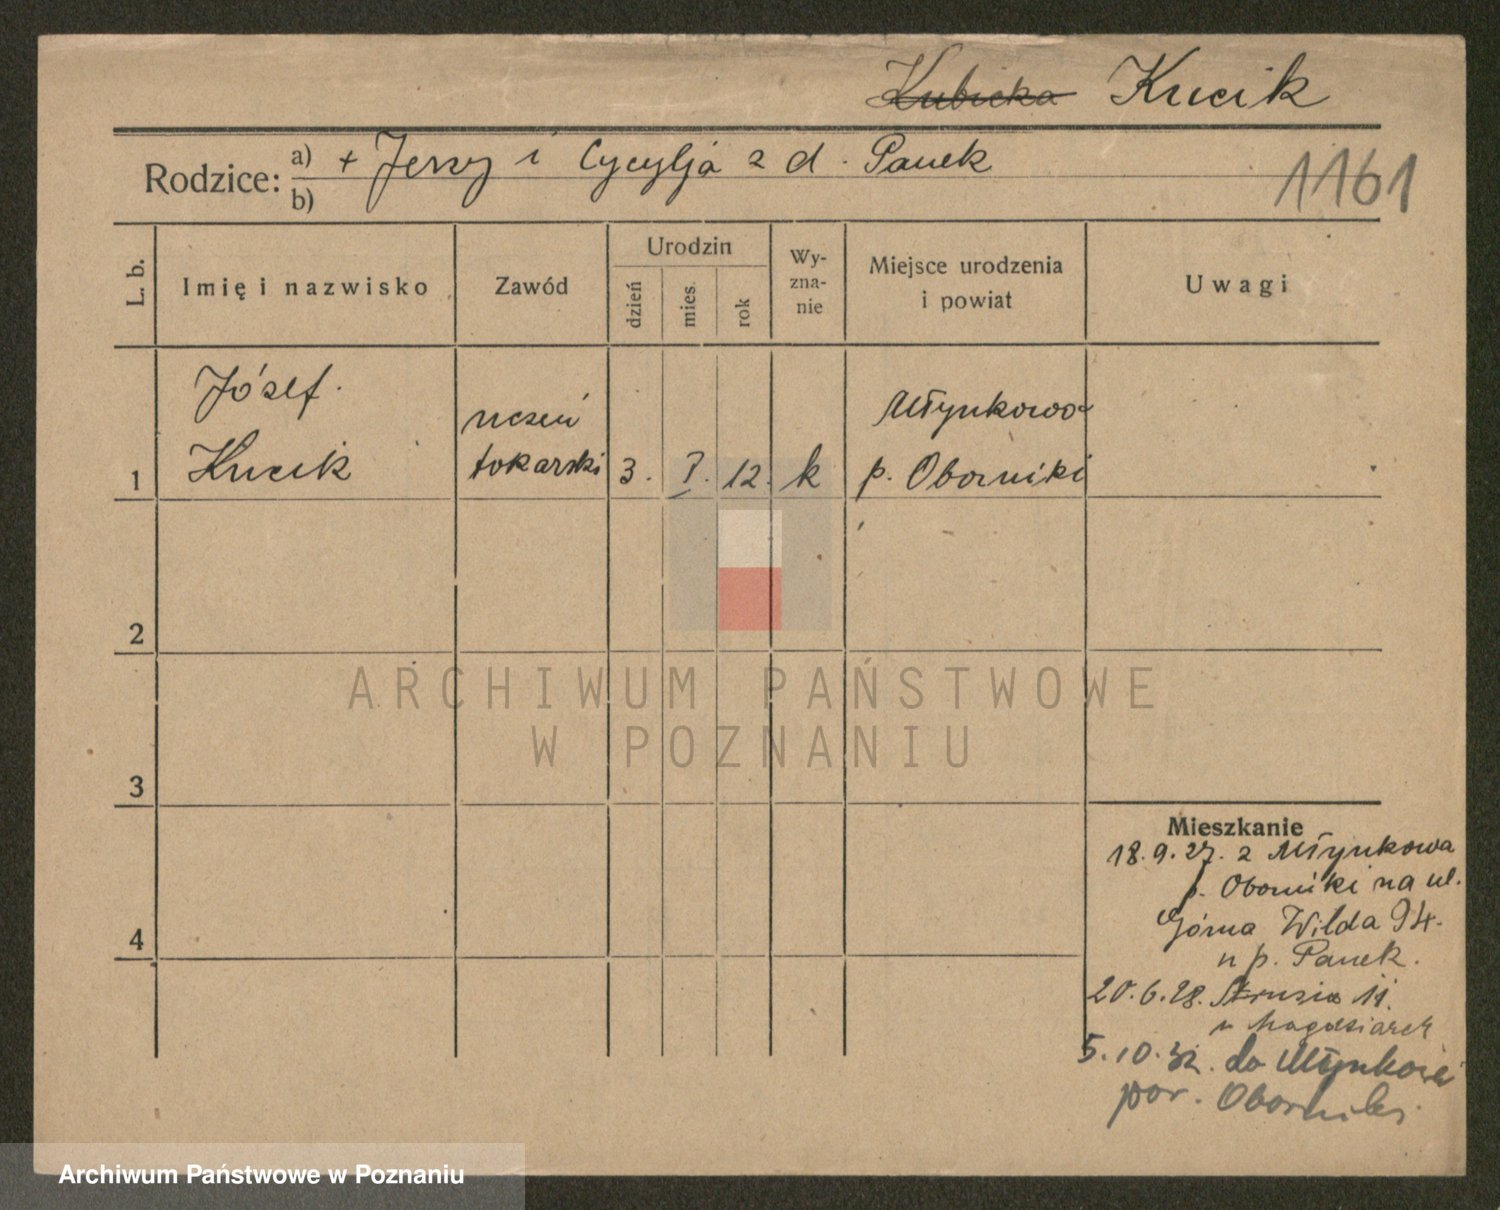 Kubicka Kucik
Rodzice: a) + Jerzy i Cycylja z d. Panek
b)
1161
L. b.
Imię i nazwisko
Zawód
Urodzin
dzień
mies.
rok
Wy-
zna-
nie
Miejsce urodzenia
i powiat
Uwagi
Józef
Kucik
uczeń
tokarski
1
3. I. 12. k
Młynkowo
p. Oborniki
2
3
4
Mieszkanie
18.9.27. z Młynkowa
p. Oborniki na ul.
Górna Wilda 94.
u p. Panek.
20.6.28. Strusia 11.
u
5.10.32. do Młynkowa
pow. Oborniki
ARCHIWUM PAŃSTWOWE
W POZNANIU
Archiwum Państwowe w Poznaniu